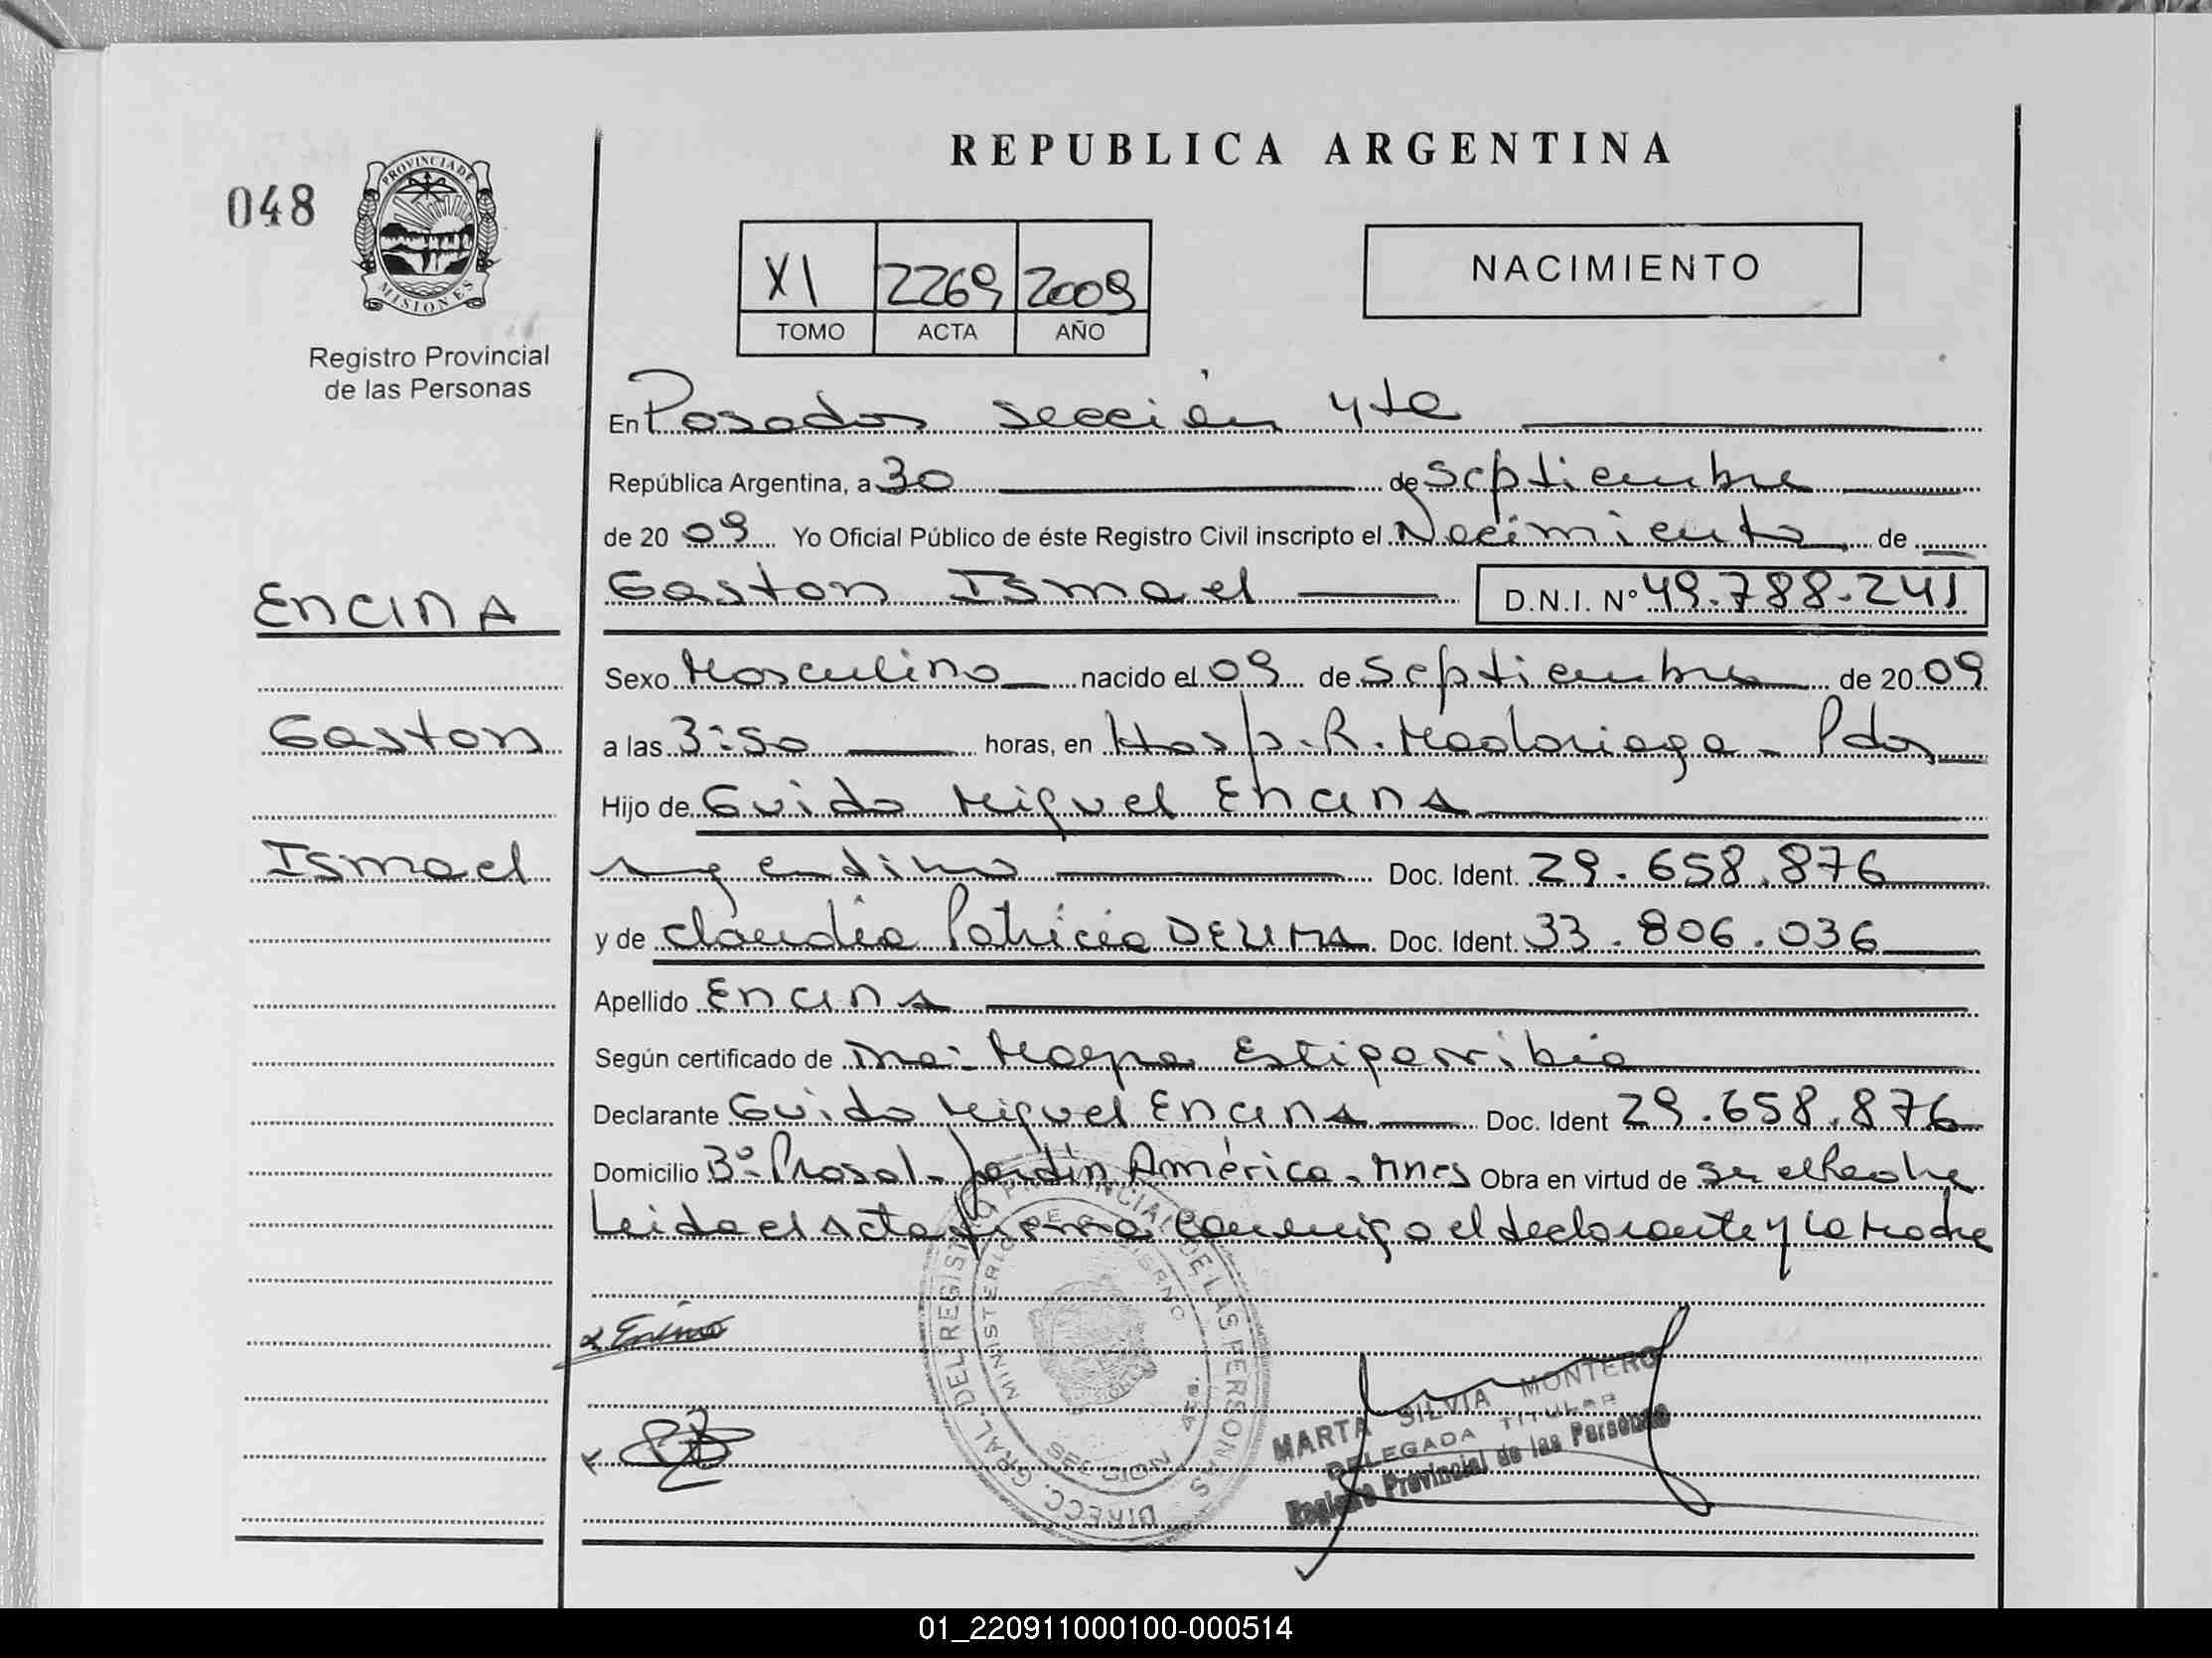 REPUBLICA ARGENTINA
048
PROVINCIA DE
MISIONES
Registro Provincial
de las Personas
XI 2269 2009
TOMO ACTA AÑO
NACIMIENTO
En Posadas sección 4ta
República Argentina, a 30 de Septiembre
de 2009 Yo Oficial Público de éste Registro Civil inscripto el Nacimiento de
ENCINA
Gaston Ismael D.N.I. N° 49.788.241
Sexo Masculino nacido el 09 de Septiembre de 2009
Gaston
a las 3:50 horas, en Hosp. R. Madariaga - Pdas
Hijo de Guido Miguel Encina
Ismael
argentino Doc. Ident. 29.658.876
y de Claudia Patricia DELIMA Doc. Ident. 33.806.036
Apellido Encina
Según certificado de Estigarribia
Declarante Guido Miguel Encina Doc. Ident 29.658.876
Domicilio B° Rosal - Jardín América - Mnes Obra en virtud de ser el Padre
Leida el Acta firma conmigo el declarante y la Madre
DIRECC. GRAL. DEL REGISTRO PROVINCIAL DE LAS PERSONAS
MINISTERIO DE GOBIERNO
MARTA SILVIA MONTERO
DELEGADA TITULAR
Registro Provincial de las Personas
01_220911000100-000514